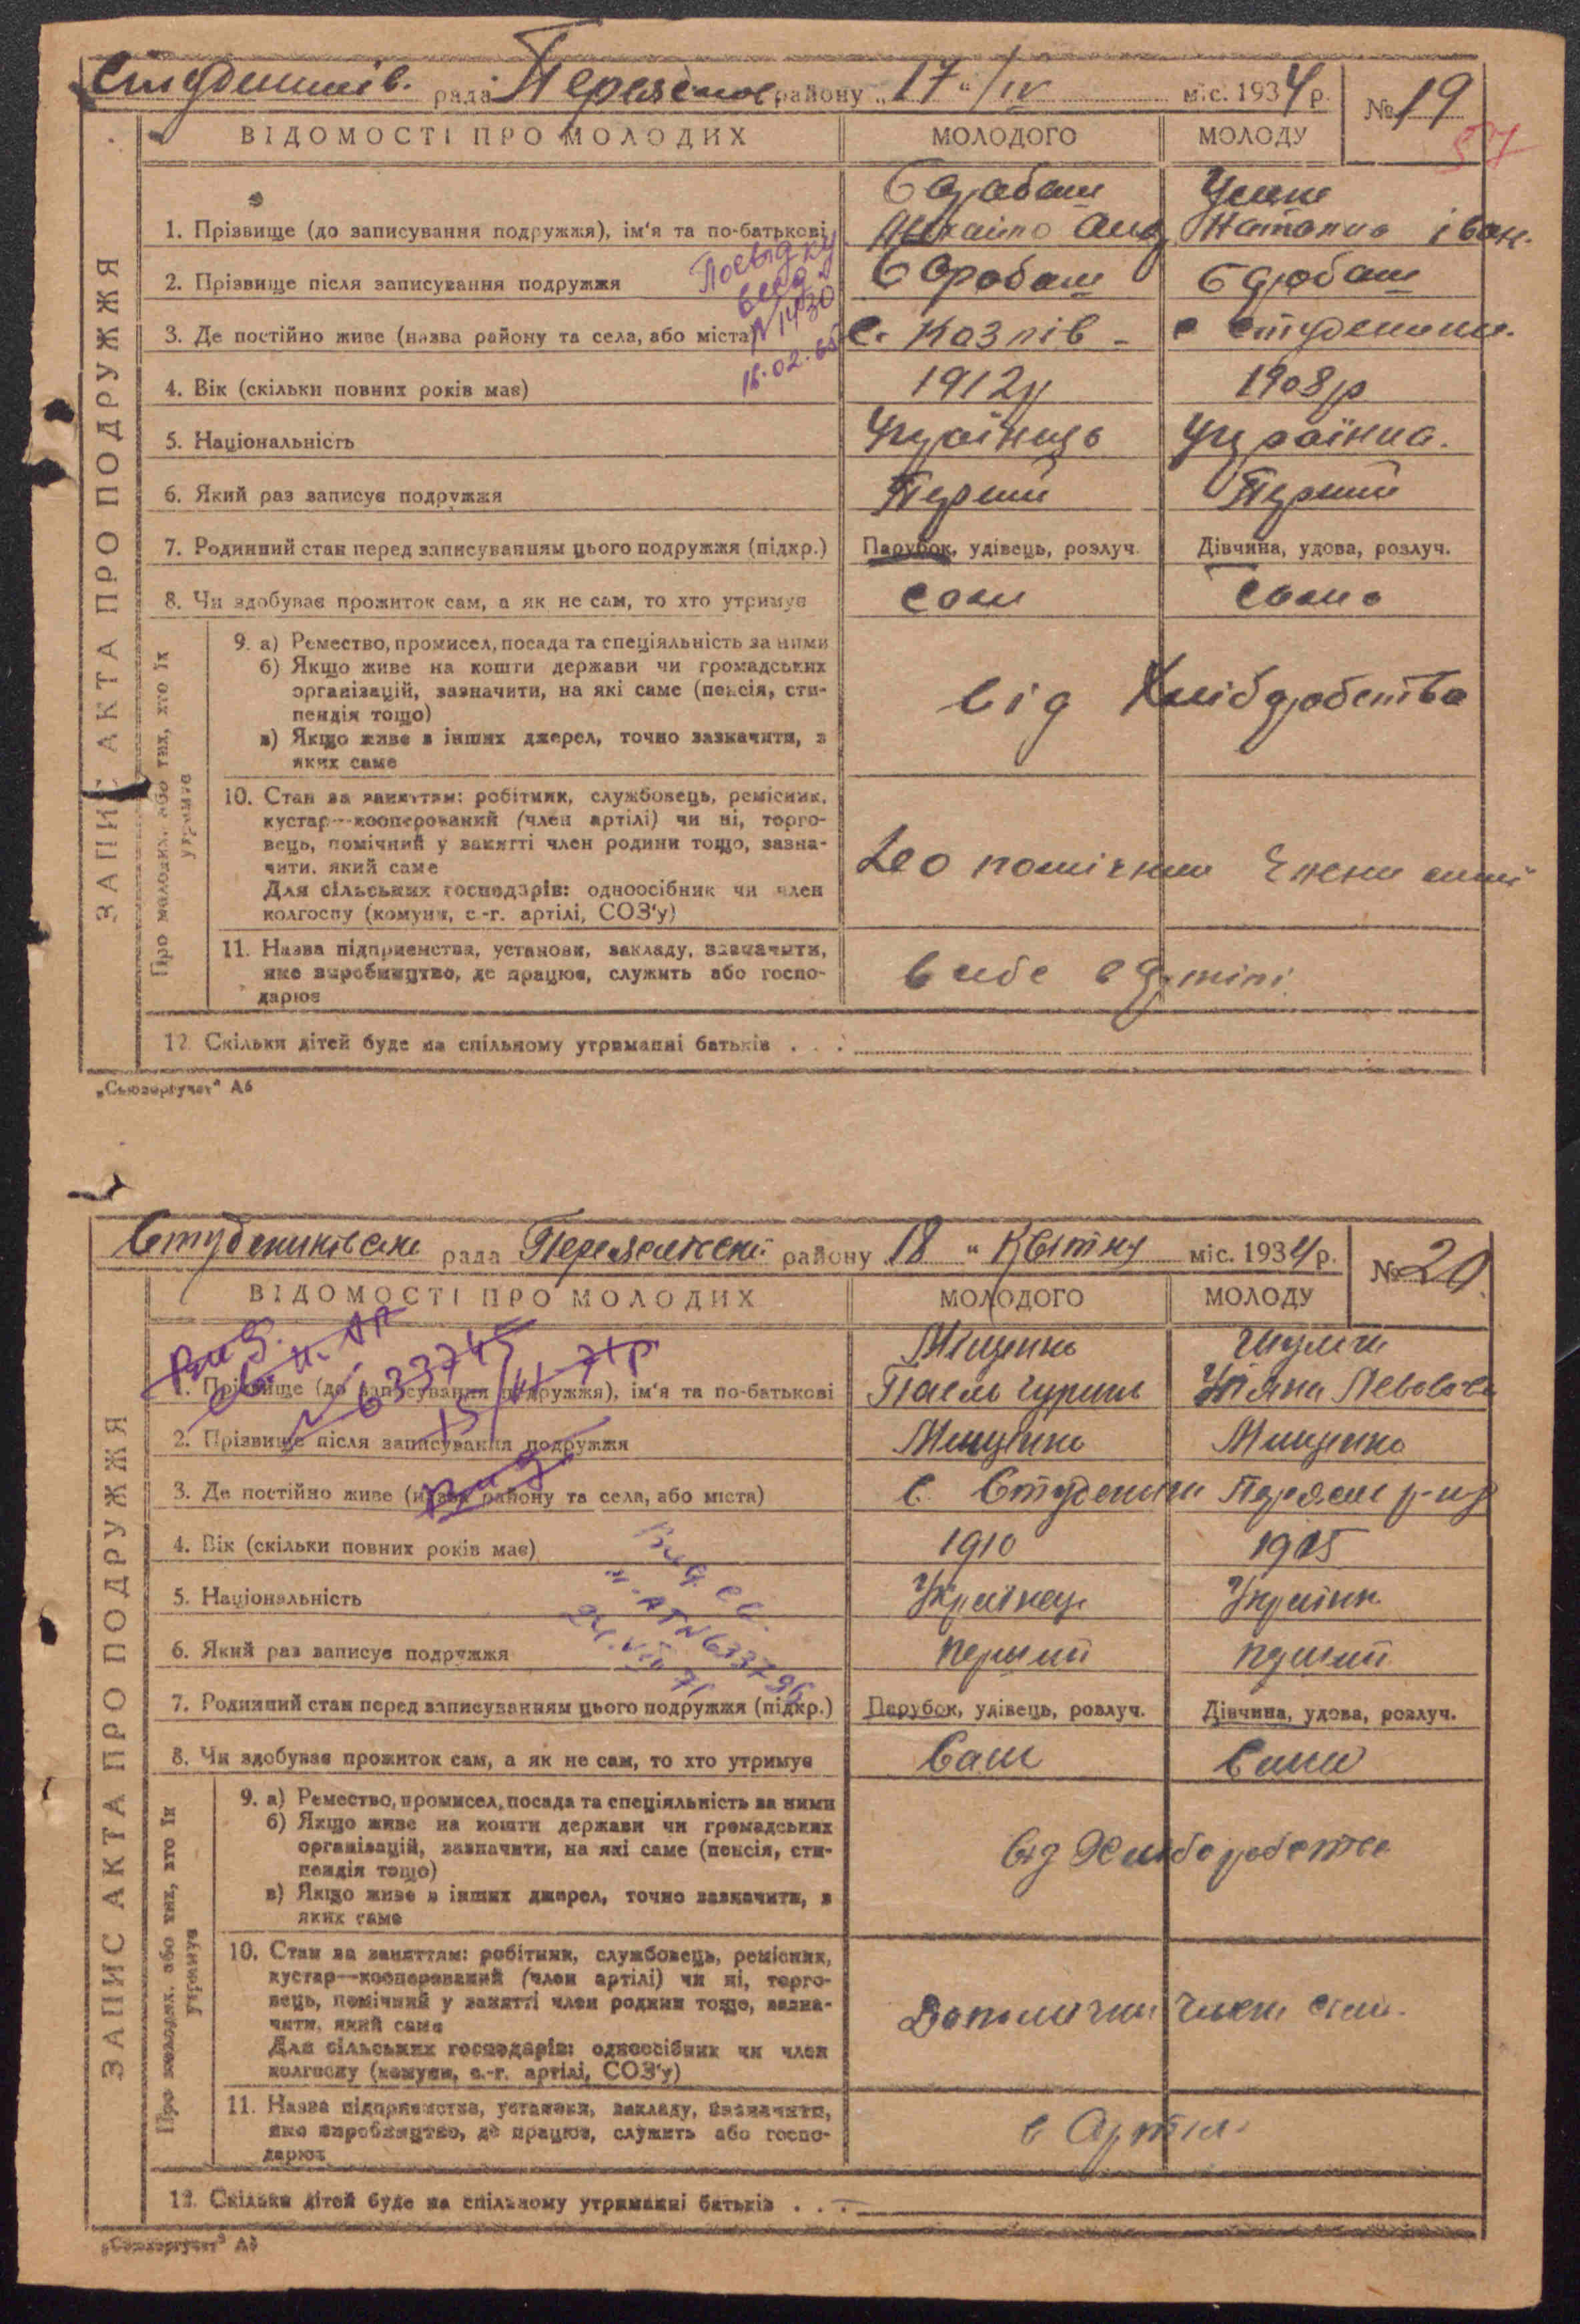 Студеників. рада Переяснос району „17“ IV міс. 1934 р. № 19
57
ВІДОМОСТІ ПРО МОЛОДИХ МОЛОДОГО МОЛОДУ
ЗАПИС АКТА ПРО ПОДРУЖЖЯ
1. Прізвище (до записування подружжя), ім'я та по-батькові Михайло Анд Наталка Іван.
Посвідку
видд
N 1430
16.02.65
2. Прізвище після записування подружжя
3. Де постійно живе (назва району та села, або міста) с. Козлів - с Студеники.
4. Вік (скільки повних років має) 1912р 1908р
5. Національність Українець Українка.
6. Який раз записує подружжя Перший Перший
7. Родинний стан перед записуванням цього подружжя (підкр.) Парубок, удівець, розлуч. Дівчина, удова, розлуч.
8. Чи здобуває прожиток сам, а як не сам, то хто утримує Сам Сама
Про молодих, або тих, хто їх утримує
9. а) Ремество, промисел, посада та спеціяльність за ними
б) Якщо живе на кошти держави чи громадських
організацій, зазначити, на які саме (пенсія, сти-
пендія тощо)
в) Якщо живе з інших джерел, точно зазначити, з
яких саме
від Хлібдробства
10. Стан за заняттям: робітник, службовець, ремісник,
кустар—кооперований (член артілі) чи ні, торго-
вець, помічний у занятті член родини тощо, зазна-
чити, який саме
Для сільських господарів: одноосібник чи член
колгоспу (комуни, с.-г. артілі, СОЗ'у)
До помічний Члени сімї
11. Назва підприємства, установи, закладу, зазначити,
яке виробництво, де працює, служить або госпо-
дарює
в себе в Артілі
12. Скільки дітей буде на спільному утриманні батьків . . .
„Союзоргучет“ А6
Студениківська рада Переяславської району 18 “ Квітня міс. 1934 р. № 20
ВІДОМОСТІ ПРО МОЛОДИХ МОЛОДОГО МОЛОДУ
ЗАПИС АКТА ПРО ПОДРУЖЖЯ
Вид.
св. н. АП
№ 633745
Мищенко
1. Прізвище (до записування подружжя), ім'я та по-батькові Уляна
2. Прізвище після записування подружжя Мищенко Мищенко
Вид.
3. Де постійно живе (назва району та села, або міста) с. Студеники Переясл р-ну
4. Вік (скільки повних років має) 1910 1915
Вид св.
24.VIII 71
5. Національність Українець Українк
6. Який раз записує подружжя перший перший
7. Родинний стан перед записуванням цього подружжя (підкр.) Парубок, удівець, розлуч. Дівчина, удова, розлуч.
8. Чи здобуває прожиток сам, а як не сам, то хто утримує Сам Сама
Про молодих, або тих, хто їх утримує
9. а) Ремество, промисел, посада та спеціяльність за ними
б) Якщо живе на кошти держави чи громадських
організацій, зазначити, на які саме (пенсія, сти-
пендія тощо)
в) Якщо живе з інших джерел, точно зазначити, з
яких саме
від Хлиборобства
10. Стан за заняттям: робітник, службовець, ремісник,
кустар—кооперований (член артілі) чи ні, торго-
вець, помічний у занятті член родини тощо, зазна-
чити, який саме
Для сільських господарів: одноосібник чи член
колгоспу (комуни, с.-г. артілі, СОЗ'у)
Допомічни Члени сімї.
11. Назва підприємства, установи, закладу, зазначити,
яке виробництво, де працює, служить або госпо-
дарює
в Артілі
12. Скільки дітей буде на спільному утриманні батьків . . . —
„Союзоргучет“ А6